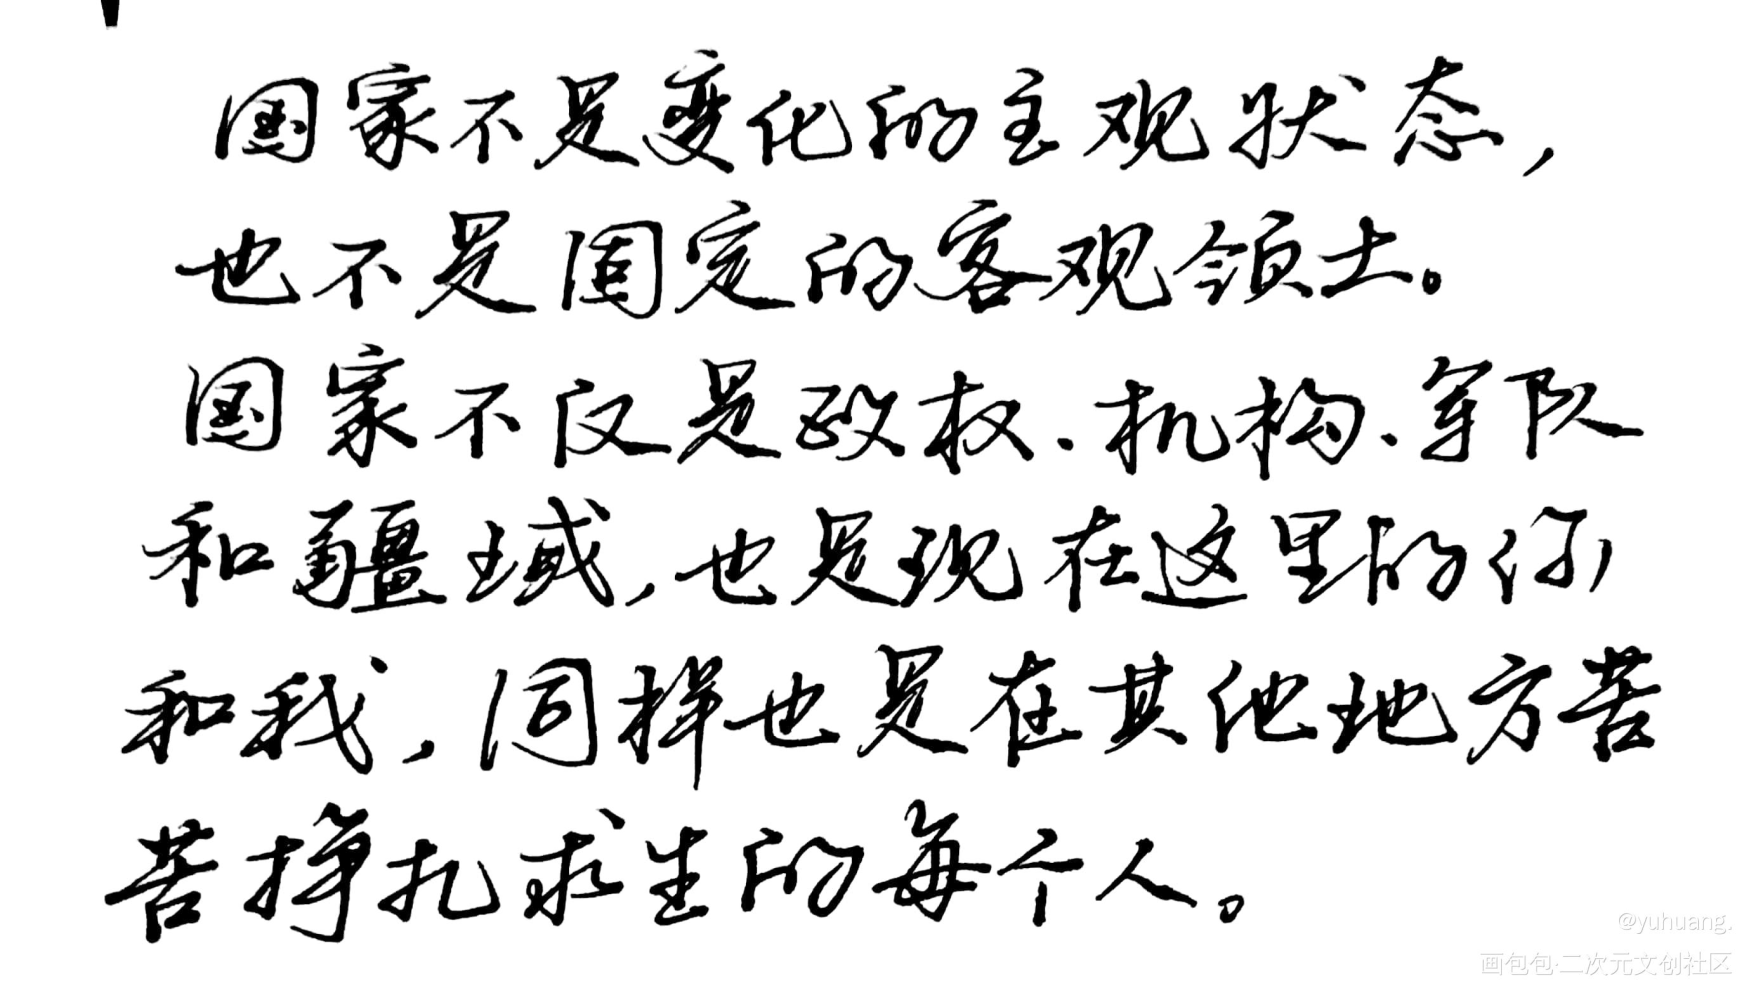 国家不是变化的主观状态，
也不是固定的客观领土。
国家不仅是政权、机构、军队
和疆域，也是现在这里的你
和我，同样也是在其他地方苦
苦挣扎求生的每个人。
@yuhuang.
画包包·二次元文创社区